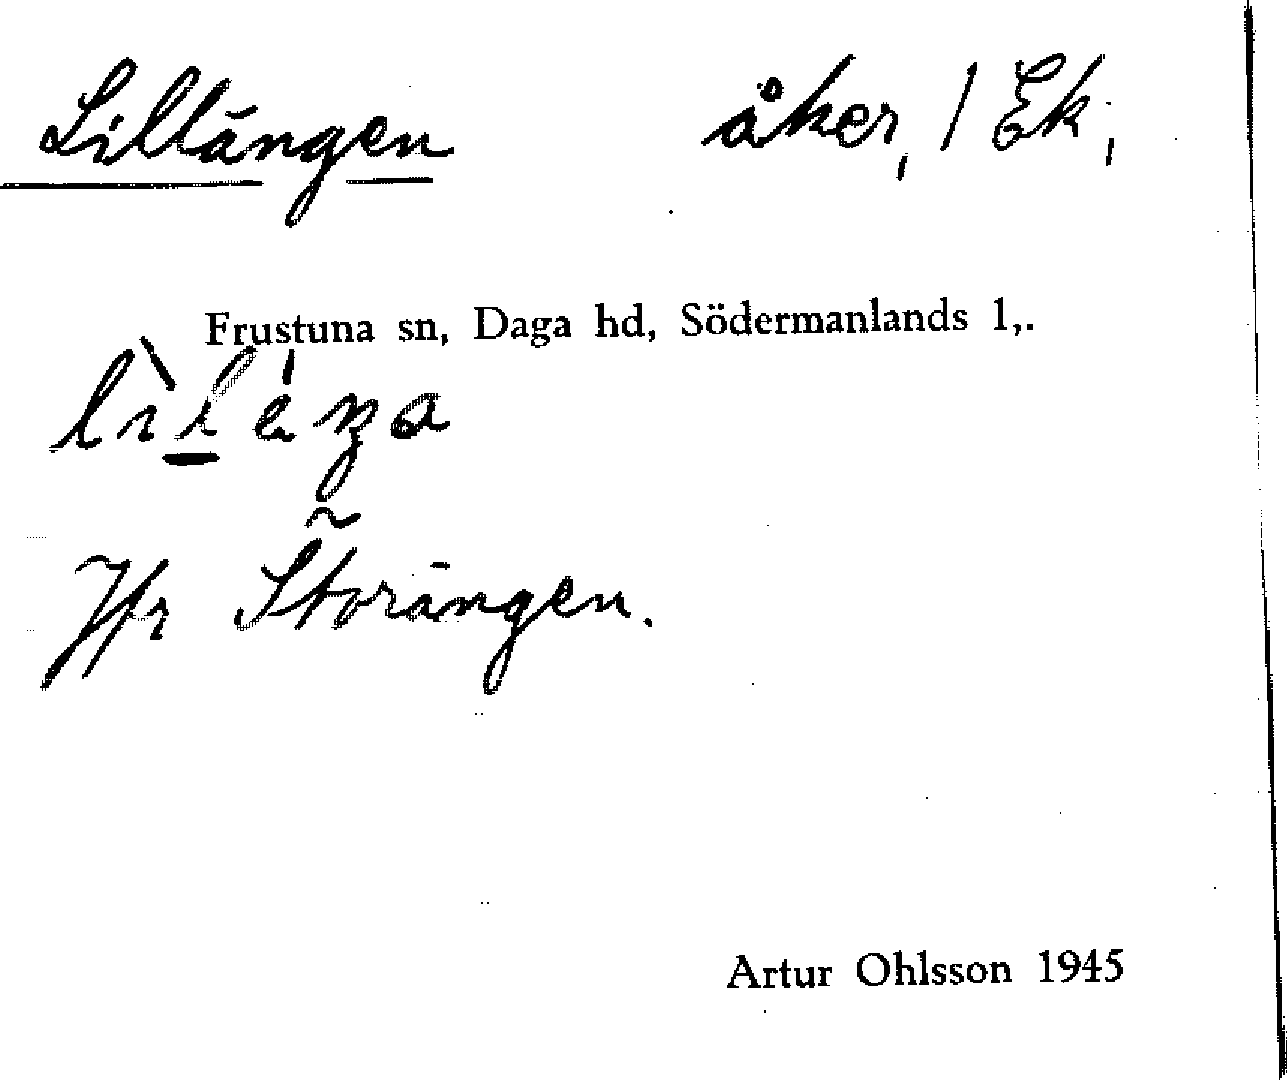 Lillängen åker, / Ek,
Frustuna sn, Daga hd, Södermanlands l,.
Jfr Storängen.
Artur Ohlsson 1945